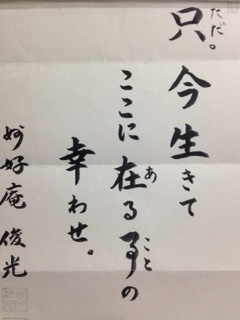 只。今生きて
ここに在る事の
幸わせ。
妙好庵 俊光